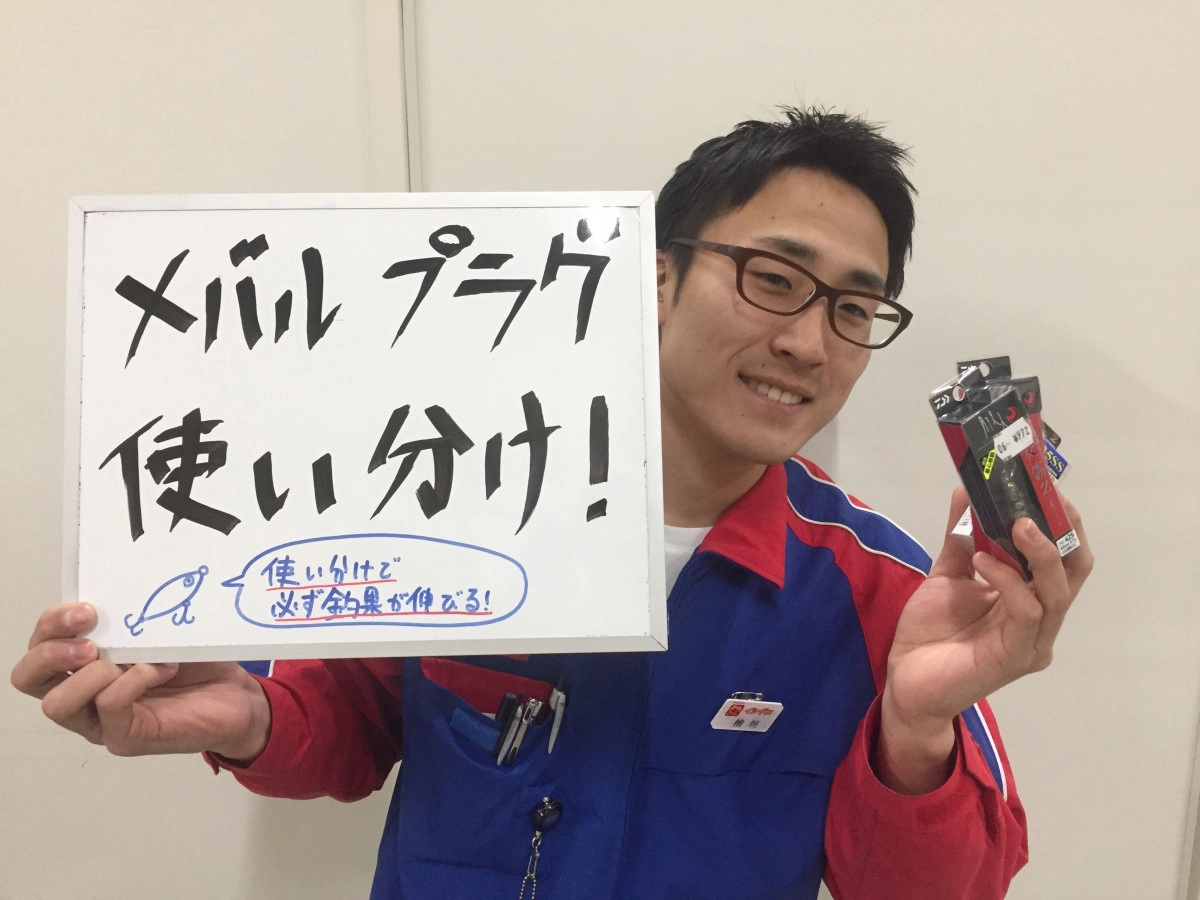 メバルプラグ
使い分け!
使い分けで
必ず釣果が伸びる!